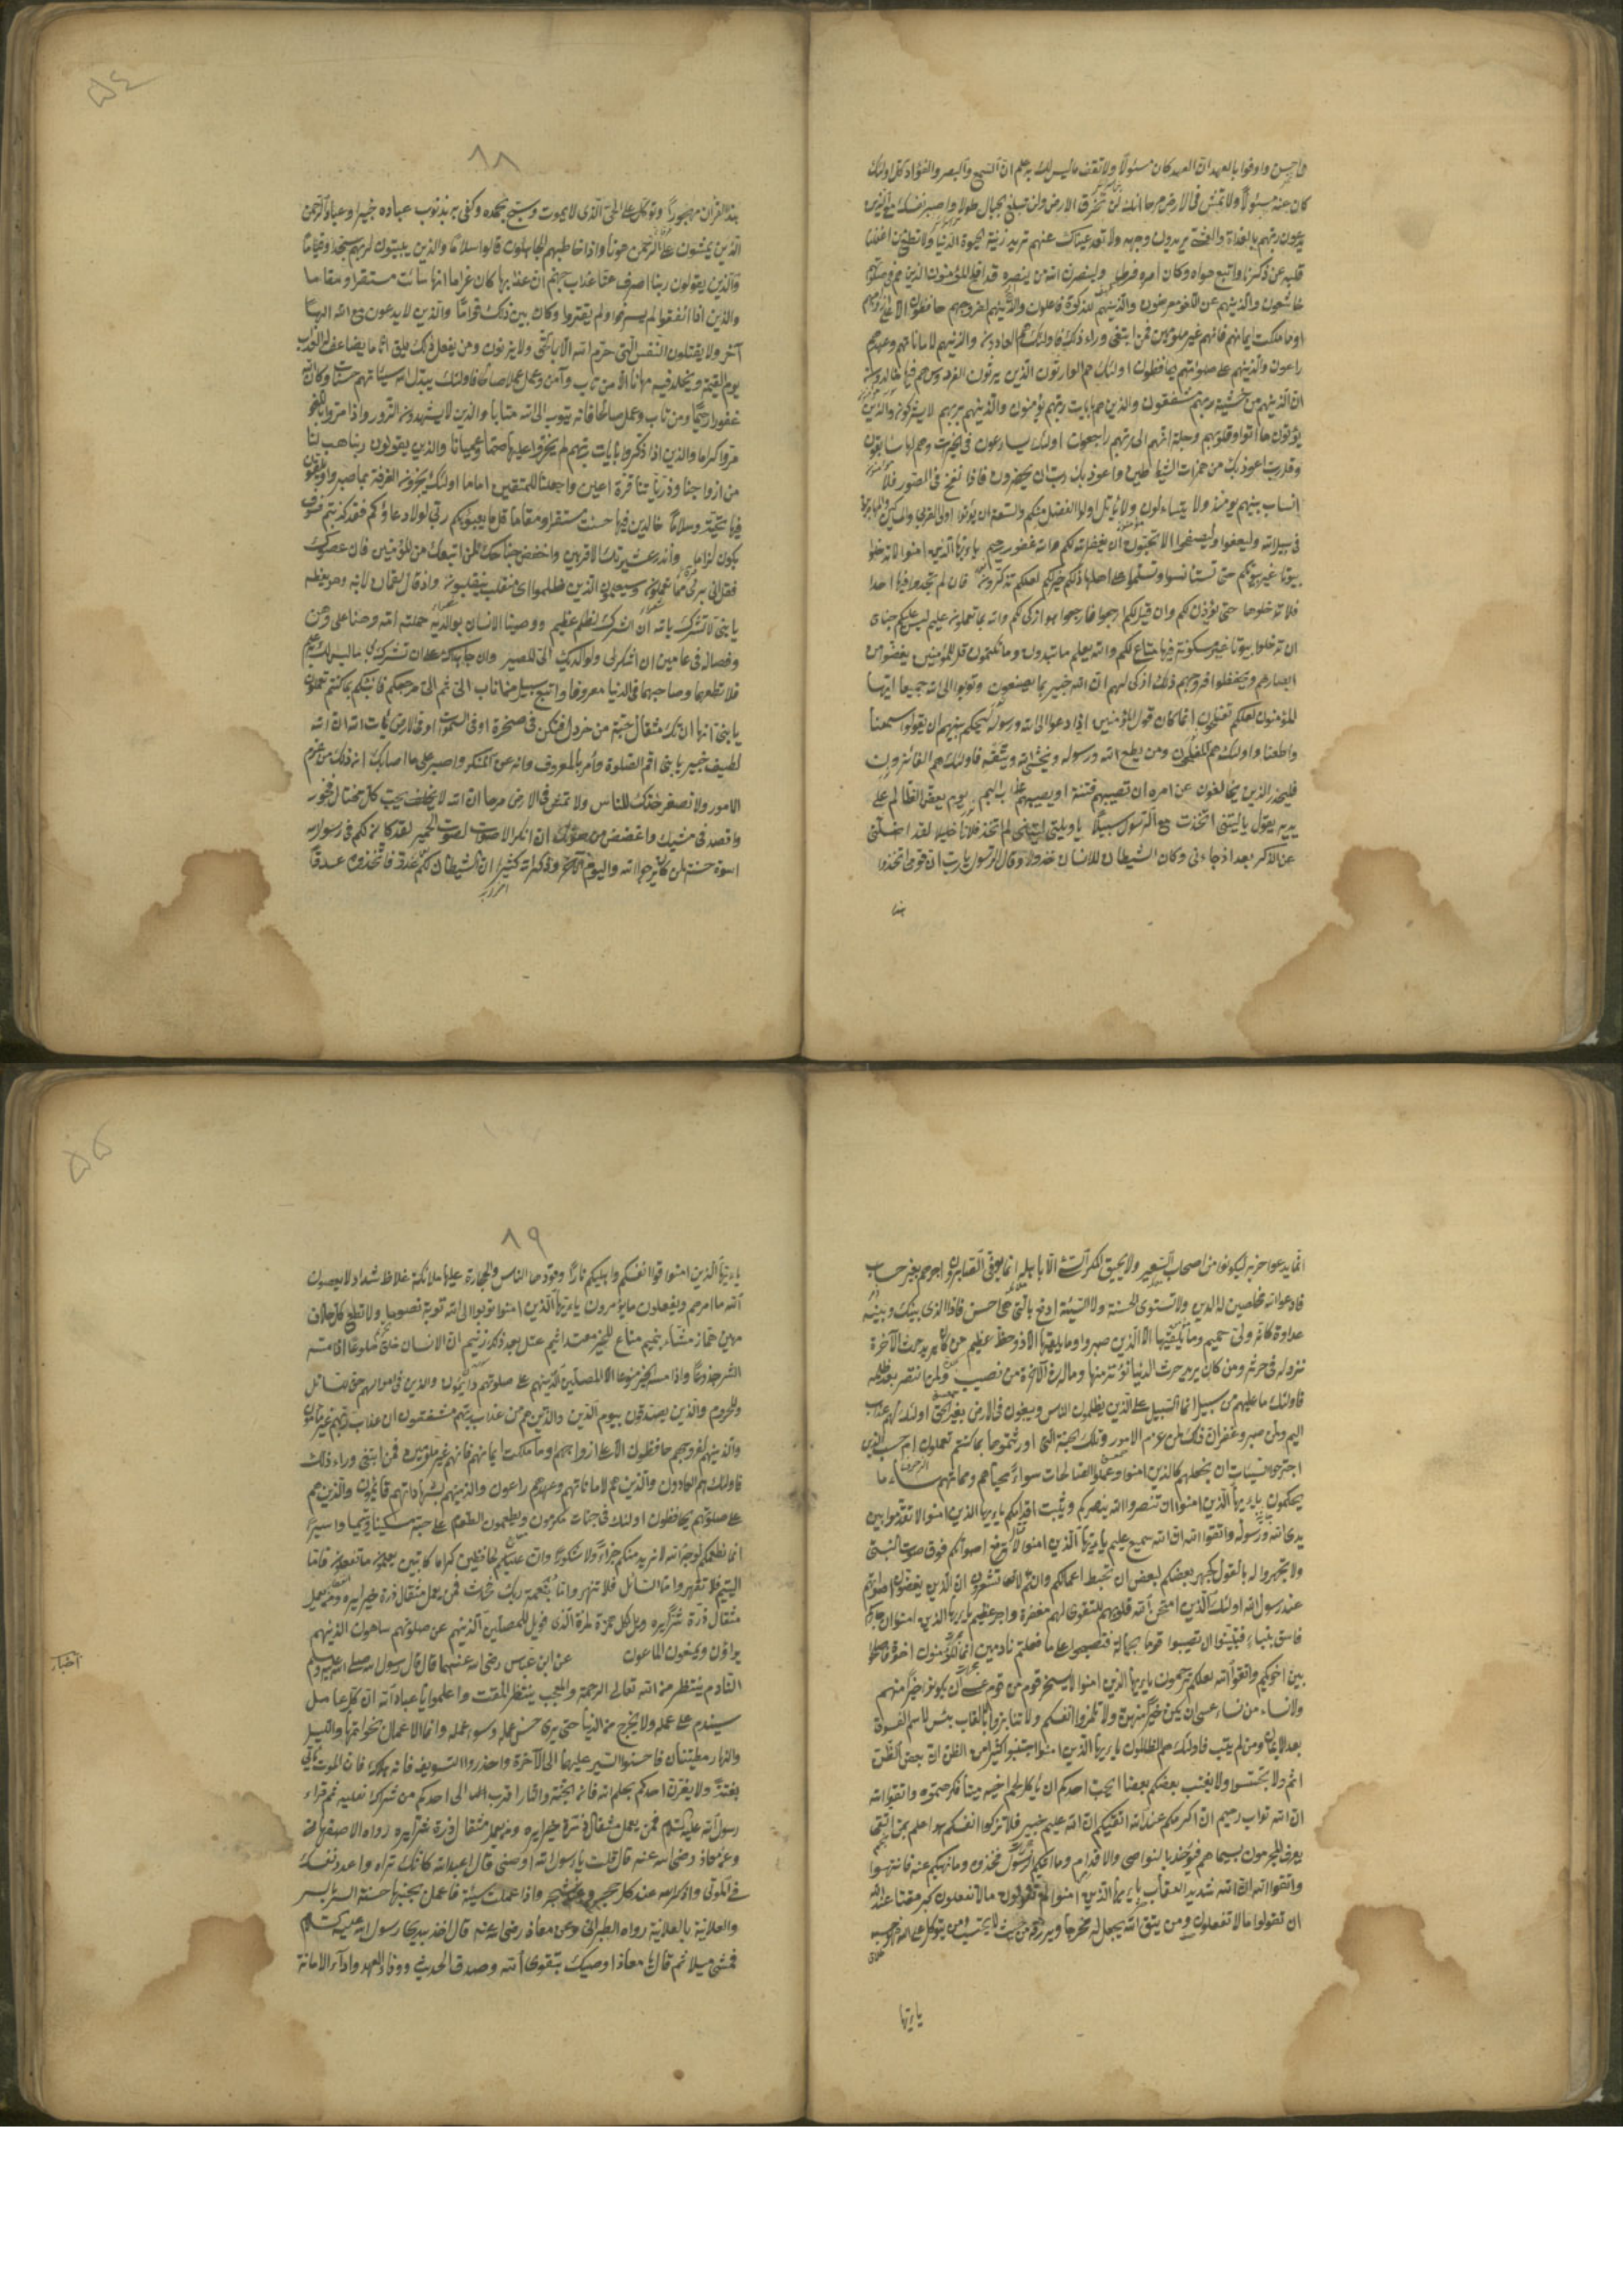 واوفوا بالعهد ان العهد كان مسئولا ولا تقف ما ليس لك به علم ان السمع والبصر والفؤاد كل اولئك
كان عنه مسئولا ولا تمش فى الارض مرحا انك لن تخرق الارض ولن تبلغ الجبال طولا واصبر نفسك مع الذين
يدعون ربهم بالغداة والعشى يريدون وجهه ولا تعد عيناك عنهم تريد زينة الحيوة الدنيا ولا تطع من اغفلنا
قلبه عن ذكرنا واتبع هواه وكان امره فرطا ولينصرن الله من ينصره قد افلح المؤمنون الذين هم فى صلوتهم
خاشعون والذينهم عن اللغو معرضون والذينهم للزكوة فاعلون والذينهم لفروجهم حافظون الا على ازواجهم
او ما ملكت ايمانهم فانهم غير ملومين فمن ابتغى وراء ذلك فاولئك هم العادون والذينهم لاماناتهم وعهدهم
راعون والذينهم على صلوتهم يحافظون اولئك هم الوارثون الذين يرثون الفردوس هم فيها خالدون
ان الذينهم من خشية ربهم مشفقون والذين هم بايات ربهم يؤمنون والذينهم بربهم لا يشركون والذين
يؤتون ما اتوا وقلوبهم وجلة انهم الى ربهم راجعون اولئك يسارعون فى الخيرات وهم لها سابقون
وقل رب اعوذ بك من همزات الشياطين واعوذ بك رب ان يحضرون فاذا نفخ فى الصور فلا
انساب بينهم يومئذ ولا يتساءلون ولا يأتل اولوا الفضل منكم والسعة ان يؤتوا اولى القربى والمساكين والمهاجرين
فى سبيل الله وليعفوا وليصفحوا الا تحبون ان يغفر الله لكم والله غفور رحيم يا ايها الذين امنوا لا تدخلوا
بيوتا غير بيوتكم حتى تستانسوا وتسلموا على اهلها ذلكم خير لكم لعلكم تذكرون فان لم تجدوا فيها احدا
فلا تدخلوها حتى يؤذن لكم وان قيل لكم ارجعوا فارجعوا هو ازكى لكم والله بما تعملون عليم ليس عليكم جناح
ان تدخلوا بيوتا غير مسكونة فيها متاع لكم والله يعلم ما تبدون وما تكتمون قل للمؤمنين يغضوا من
ابصارهم ويحفظوا فروجهم ذلك ازكى لهم ان الله خبير بما يصنعون وتوبوا الى الله جميعا ايها
المؤمنون لعلكم تفلحون انما كان قول المؤمنين اذا دعوا الى الله ورسوله ليحكم بينهم ان يقولوا سمعنا
واطعنا واولئك هم المفلحون ومن يطع الله ورسوله ويخش الله ويتقه فاولئك هم الفائزون
فليحذر الذين يخالفون عن امره ان تصيبهم فتنة او يصيبهم عذاب اليم يوم يعض الظالم على
يديه يقول يا ليتنى اتخذت مع الرسول سبيلا يا ويلتى ليتنى لم اتخذ فلانا خليلا لقد اضلنى
عن الذكر بعد اذ جاءنى وكان الشيطان للانسان خذولا وقال الرسول يا رب ان قومى اتخذوا
هذا
٥٤
٨٨
هذا القران مهجورا وتوكل على الحى الذى لا يموت وسبح بحمده وكفى به بذنوب عباده خبيرا وعباد الرحمن
الذين يمشون على الارض هونا واذا خاطبهم الجاهلون قالوا سلاما والذين يبيتون لربهم سجدا وقياما
والذين يقولون ربنا اصرف عنا عذاب جهنم ان عذابها كان غراما انها ساءت مستقرا ومقاما
والذين اذا انفقوا لم يسرفوا ولم يقتروا وكان بين ذلك قواما والذين لا يدعون مع الله الها
آخر ولا يقتلون النفس التى حرم الله الا بالحق ولا يزنون ومن يفعل ذلك يلق اثاما يضاعف له العذاب
يوم القيمة ويخلد فيه مهانا الا من تاب وآمن وعمل عملا صالحا فاولئك يبدل الله سيئاتهم حسنات وكان الله
غفورا رحيما ومن تاب وعمل صالحا فانه يتوب الى الله متابا والذين لا يشهدون الزور واذا مروا باللغو
مروا كراما والذين اذا ذكروا بايات ربهم لم يخروا عليها صما وعميانا والذين يقولون ربنا هب لنا
من ازواجنا وذرياتنا قرة اعين واجعلنا للمتقين اماما اولئك يجزون الغرفة بما صبروا ويلقون
فيها تحية وسلاما خالدين فيها حسنت مستقرا ومقاما قل ما يعبؤ بكم ربى لولا دعاؤكم فقد كذبتم فسوف
يكون لزاما وأنذر عشيرتك الاقربين واخفض جناحك لمن اتبعك من المؤمنين فان عصوك
فقل انى برئ مما تعملون وسيعلم الذين ظلموا اى منقلب ينقلبون واذ قال لقمان لابنه وهو يعظه
يا بنى لا تشرك بالله ان الشرك لظلم عظيم ووصينا الانسان بوالديه حملته امه وهنا على وهن
وفصاله فى عامين ان اشكر لى ولوالديك الى المصير وان جاهداك على ان تشرك بى ما ليس لك به علم
فلا تطعهما وصاحبهما فى الدنيا معروفا واتبع سبيل من اناب الى ثم الى مرجعكم فانبئكم بما كنتم تعملون
يا بنى انها ان تك مثقال حبة من خردل فتكن فى صخرة او فى السموات او فى الارض يأت بها الله ان الله
لطيف خبير يا بنى اقم الصلوة وأمر بالمعروف وانه عن المنكر واصبر على ما اصابك ان ذلك من عزم
الامور ولا تصعر خدك للناس ولا تمش فى الارض مرحا ان الله لا يحب كل مختال فخور
واقصد فى مشيك واغضض من صوتك ان انكر الاصوات لصوت الحمير لقد كان لكم فى رسول الله
اسوة حسنة لمن كان يرجوا الله واليوم الآخر وذكر الله كثيرا ان الشيطان لكم عدو فاتخذوه عدوا
انما يدعوا حزبه ليكونوا من اصحاب السعير ولا يحيق المكر السيئ الا باهله انما يوفى الصابرون اجرهم بغير حساب
فادعوا الله مخلصين له الدين ولا تستوى الحسنة ولا السيئة ادفع بالتى هى احسن فاذا الذى بينك وبينه
عداوة كانه ولى حميم وما يلقيها الا الذين صبروا وما يلقيها الا ذو حظ عظيم من كان يريد حرث الآخرة
نزد له فى حرثه ومن كان يريد حرث الدنيا نؤته منها وما له فى الآخرة من نصيب ولمن انتصر بعد ظلمه
فاولئك ما عليهم من سبيل انما السبيل على الذين يظلمون الناس ويبغون فى الارض بغير الحق اولئك لهم عذاب
اليم ولمن صبر وغفر ان ذلك لمن عزم الامور وتلك الجنة التى اورثتموها بما كنتم تعملون ام حسب الذين
اجترحوا السيئات ان نجعلهم كالذين امنوا وعملوا الصالحات سواء محياهم ومماتهم ساء ما
يحكمون يا ايها الذين امنوا ان تنصروا الله ينصركم ويثبت اقدامكم يا ايها الذين امنوا لا تقدموا بين
يدى الله ورسوله واتقوا الله ان الله سميع عليم يا ايها الذين امنوا لا ترفعوا اصواتكم فوق صوت النبى
ولا تجهروا له بالقول كجهر بعضكم لبعض ان تحبط اعمالكم وانتم لا تشعرون ان الذين يغضون اصواتهم
عند رسول الله اولئك الذين امتحن الله قلوبهم للتقوى لهم مغفرة واجر عظيم يا ايها الذين امنوا ان جاءكم
فاسق بنباء فتبينوا ان تصيبوا قوما بجهالة فتصبحوا على ما فعلتم نادمين انما المؤمنون اخوة فاصلحوا
بين اخويكم واتقوا الله لعلكم ترحمون يا ايها الذين امنوا لا يسخر قوم من قوم عسى ان يكونوا خيرا منهم
ولا نساء من نساء عسى ان يكن خيرا منهن ولا تلمزوا انفسكم ولا تنابزوا بالالقاب بئس الاسم الفسوق
بعد الايمان ومن لم يتب فاولئك هم الظالمون يا ايها الذين امنوا اجتنبوا كثيرا من الظن ان بعض الظن
اثم ولا تجسسوا ولا يغتب بعضكم بعضا ايحب احدكم ان يأكل لحم اخيه ميتا فكرهتموه واتقوا الله
ان الله تواب رحيم ان اكرمكم عند الله اتقيكم ان الله عليم خبير فلا تزكوا انفسكم هو اعلم بمن اتقى
يعرف المجرمون بسيماهم فيؤخذ بالنواصى والاقدام وما اتيكم الرسول فخذوه وما نهيكم عنه فانتهوا
واتقوا الله ان الله شديد العقاب يا ايها الذين امنوا لم تقولون ما لا تفعلون كبر مقتا عند الله
ان تقولوا ما لا تفعلون ومن يتق الله يجعل له مخرجا ويرزقه من حيث لا يحتسب ومن يتوكل على الله فهو حسبه
يا ايها
٥٥
٨٩
يا ايها الذين امنوا قوا انفسكم واهليكم نارا وقودها الناس والحجارة عليها ملائكة غلاظ شداد لا يعصون
الله ما امرهم ويفعلون ما يؤمرون يا ايها الذين امنوا توبوا الى الله توبة نصوحا ولا تطع كل حلاف
مهين هماز مشاء بنميم مناع للخير معتد اثيم عتل بعد ذلك زنيم ان الانسان خلق هلوعا اذا مسه
الشر جزوعا واذا مسه الخير منوعا الا المصلين الذينهم على صلوتهم دائمون والذين فى اموالهم حق للسائل
والمحروم والذين يصدقون بيوم الدين والذين هم من عذاب ربهم مشفقون ان عذاب ربهم غير مأمون
والذينهم لفروجهم حافظون الا على ازواجهم او ما ملكت ايمانهم فانهم غير ملومين فمن ابتغى وراء ذلك
فاولئك هم العادون والذين هم لاماناتهم وعهدهم راعون والذينهم بشهاداتهم قائمون والذين هم
على صلوتهم يحافظون اولئك فى جنات مكرمون ويطعمون الطعام على حبه مسكينا ويتيما واسيرا
انما نطعمكم لوجه الله لا نريد منكم جزاء ولا شكورا وان عليكم لحافظين كراما كاتبين يعلمون ما تفعلون فاما
اليتيم فلا تقهر واما السائل فلا تنهر واما بنعمة ربك فحدث فمن يعمل مثقال ذرة خيرا يره ومن يعمل
مثقال ذرة شرا يره ويل لكل همزة لمزة الذى فويل للمصلين الذينهم عن صلوتهم ساهون الذينهم
يراؤن ويمنعون الماعون عن ابن عباس رضى الله عنهما قال قال رسول الله صلى الله عليه وسلم
اخبار
النادم ينتظر من الله تعالى الرحمة والمعجب ينتظر المقت واعلموا يا عباد الله ان كل عامل
سيندم على عمله ولا يخرج من الدنيا حتى يرى حسن عمله وسوء عمله وانما الاعمال بخواتيمها والليل
والنهار مطيتان فاحسنوا السير عليهما الى الآخرة واحذروا التسويف فانه هلاك فان الموت يأتى
بغتة ولا يغترن احدكم بحلم الله فان الجنة والنار اقرب الى احدكم من شراك نعليه ثم قراء
رسول الله عليه السلام فمن يعمل مثقال ذرة خيرا يره ومن يعمل مثقال ذرة شرا يره رواه الاصبهانى
وعن معاذ رضى الله عنه قال قلت يا رسول الله اوصنى قال اعبد الله كانك تراه واعدد نفسك
فى الموتى واذكر الله عند كل حجر وعند كل شجر واذا عملت سيئة فاعمل بجنبها حسنة السر بالسر
والعلانية بالعلانية رواه الطبرانى وعن معاذ رضى الله عنه قال اخذ بيدى رسول الله عليه السلام
فمشى ميلا ثم قال يا معاذ اوصيك بتقوى الله وصدق الحديث ووفاء العهد واداء الامانة